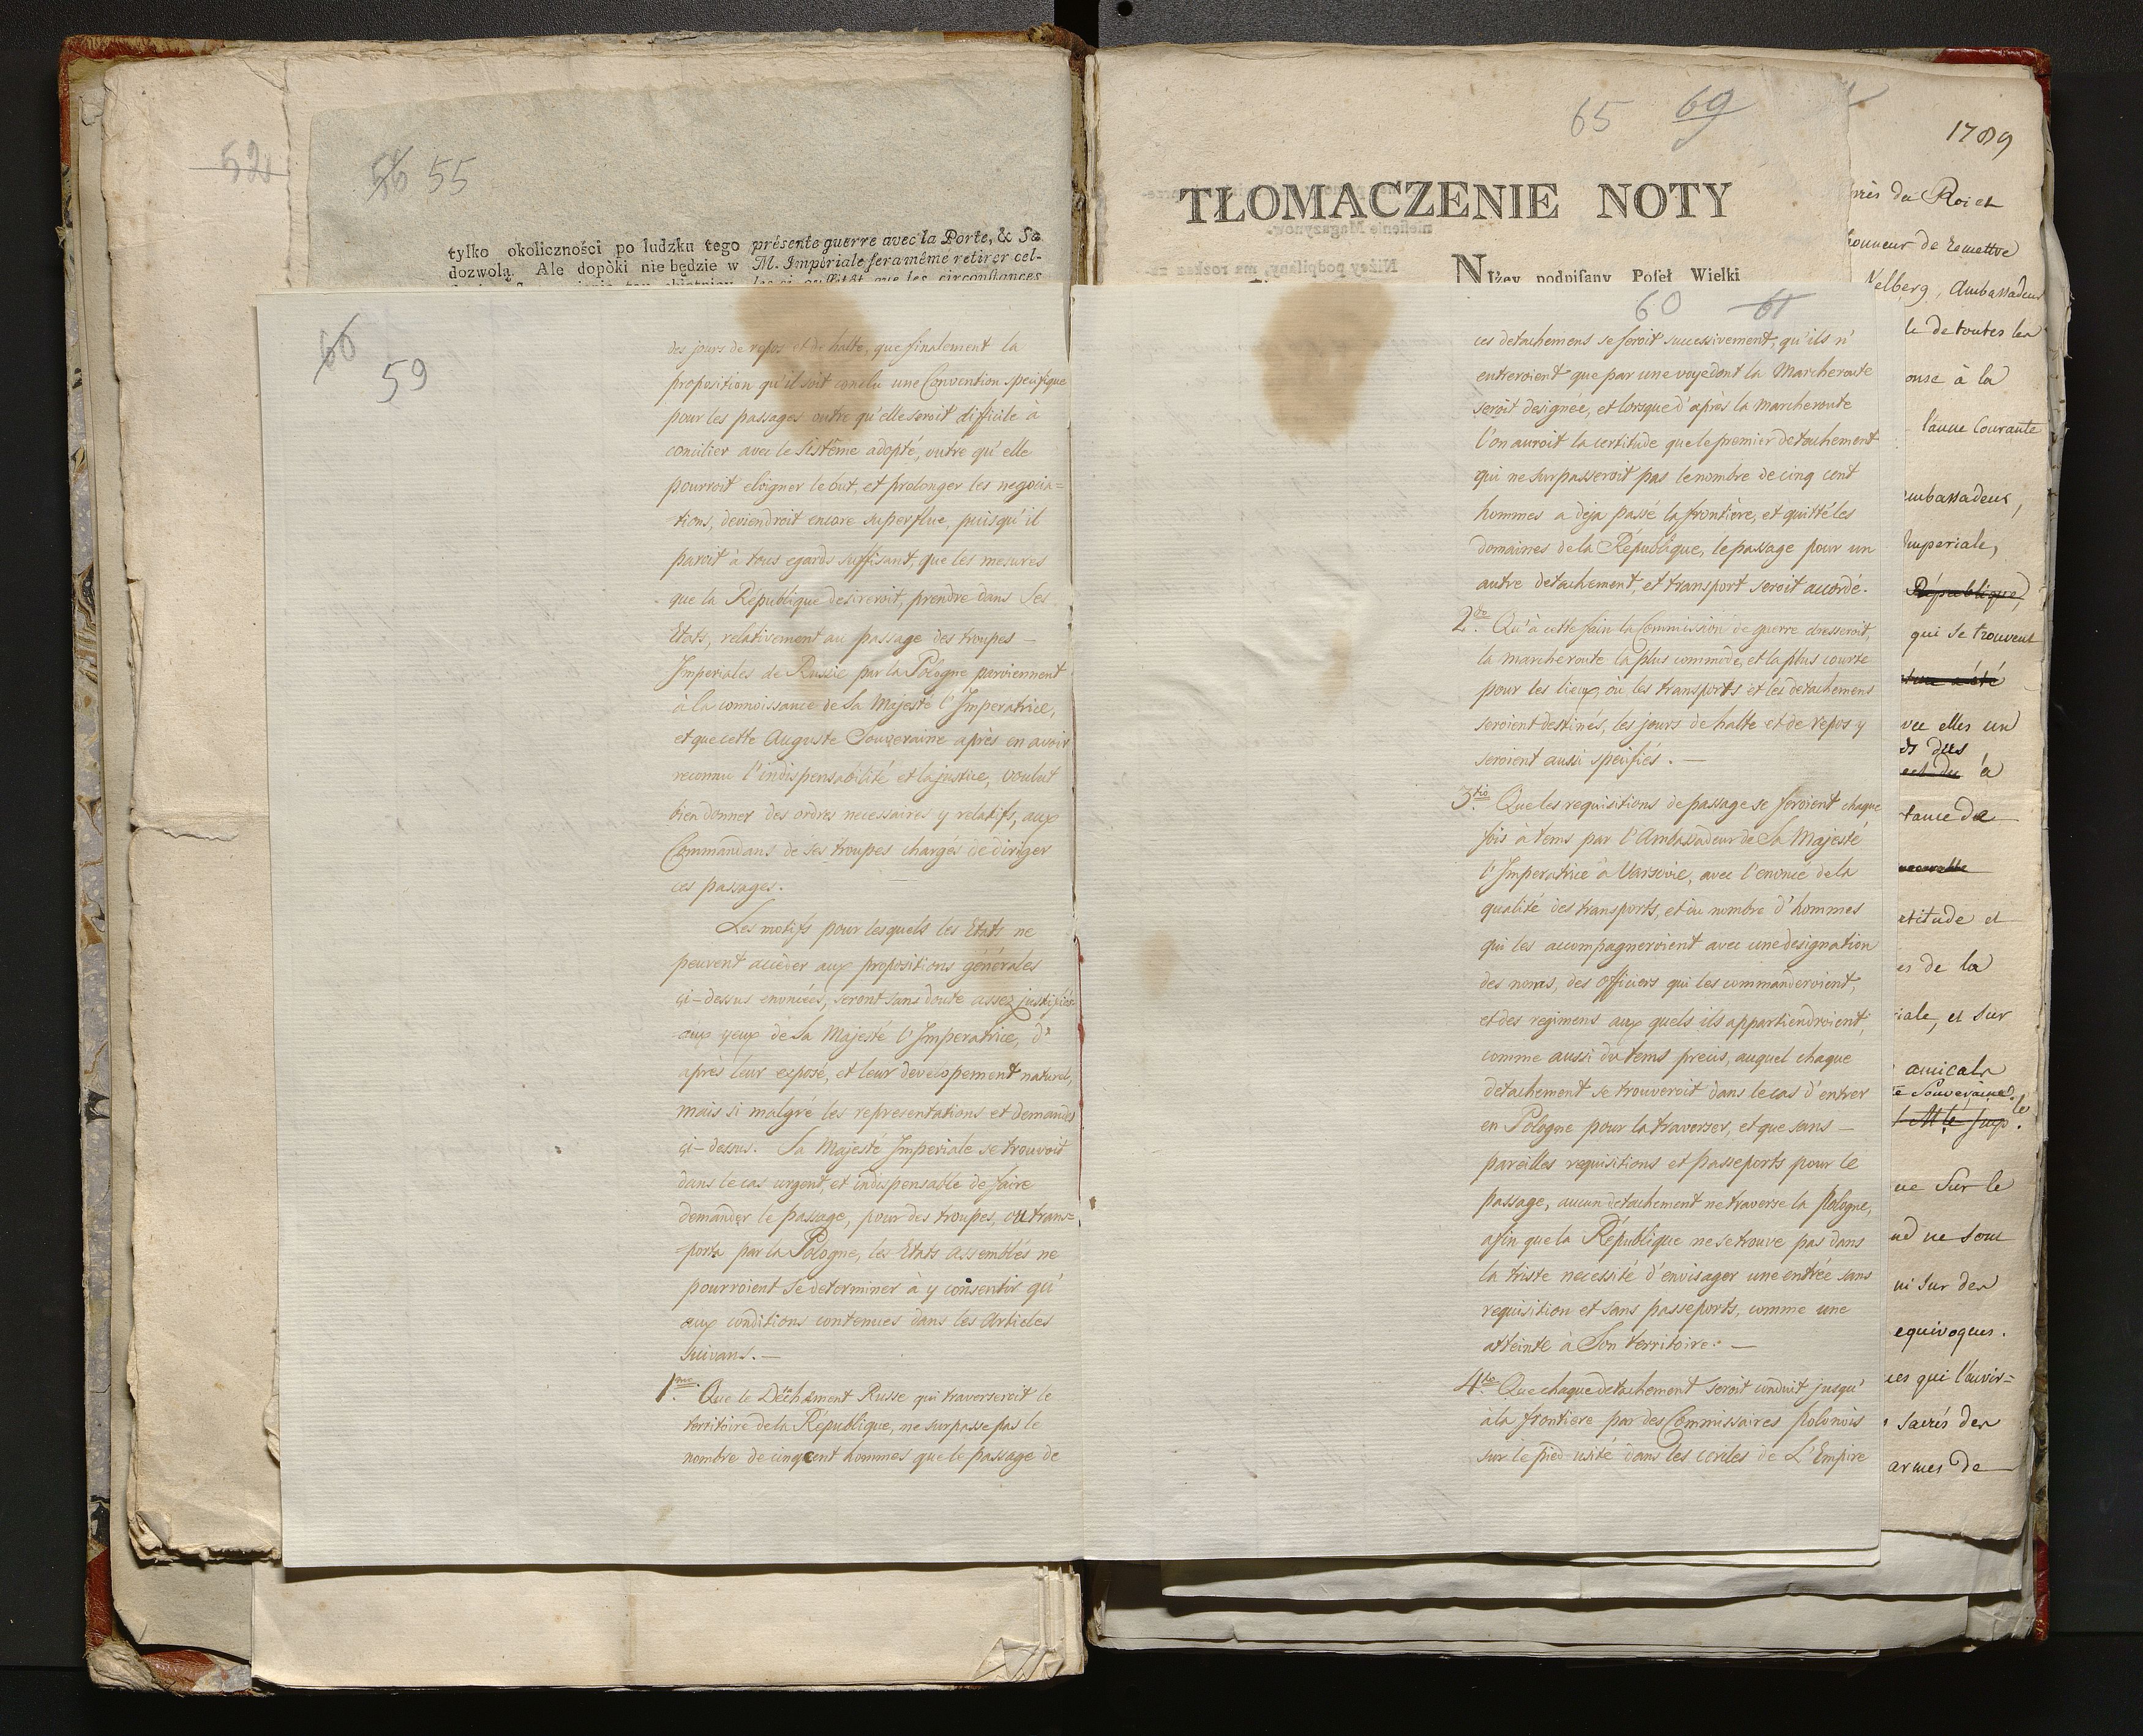 52
56 55
tylko okoliczności po ludzku tego
dozwolą. Ale dopòki nie będzie w
présente guerre avec la Porte, & Sa
M. Impériale fera même retirer cel-
66
59
des jours de repos et de halte, que finalement la
proposition qu'il soit conclu une Convention specifique
pour les passages outre qu'elle seroit difficile à
concilier avec le Sistême adopté, outre qu'elle
pourroit eloigner le but, et prolonger les negocia=
tions, deviendroit encore superflue, puisqu'il
paroit à tous egards suffisant, que les mesures
que la Republique desireroit, prendre dans Ses
Etats, relativement au passage des troupes —
Imperiales de Russie par la Pologne parviennent
à la connoissance de Sa Majesté l'Imperatrice,
et que cette Auguste Souveraine après en avoir
reconnu l'indispensabilité et la justice, voulut
bien donner des ordres necessaires y relatifs, aux
Commandans de ses troupes chargés de diriger
ces passages.
Les motifs pour lesquels les Etats ne
peuvent acceder aux propositions générales
çi-dessus enoncées, seront sans doute assez justifiés
aux yeux de Sa Majesté l'Imperatrice, d'
après leur exposé, et leur developement naturel,
mais si malgré les representations et demandes
çi-dessus. Sa Majesté Imperiale se trouvoit
dans le cas urgent, et indispensable de faire
demander le passage, pour des troupes, ou trans=
ports par la Pologne, les Etats assemblés ne
pourroient se determiner à y consentir qu'
aux conditions contenues dans les Articles
suivans. —
1mo. Que le Détachement Russe qui traverseroit le
territoire de la Republique, ne surpasse pas le
nombre de cinqcent hommes que le passage de
65 69
1789
TŁOMACZENIE NOTY
NIżey podpiſany Poſeł Wielki
60 61
ces detachemens se feroit successivement, qu'ils n'
entreroient que par une voye dont la Marcheroute
seroit designée, et lorsque d'après la marcheroute
l'on auroit la certitude que le premier detachement
qui ne surpasseroit pas le nombre de cinq cent
hommes a deja passé la frontiere, et quitté les
domaines de la Republique, le passage pour un
autre detachement, et transport seroit accordé.
2do. Qu'à cette fain la Commission de guerre dresseroit,
la marcheroute la plus commode, et la plus courte
pour les lieux, où les transports et les detachemens
seroient destinés, les jours de halte et de repos y
seroient aussi specifiés. —
3tio. Que les requisitions de passage se feroient chaque
fois à tems par l'Ambassadeur de Sa Majesté
l'Imperatrice à Varsovie, avec l'enoncé de la
qualité des transports, et du nombre d'hommes
qui les accompagneroient avec une designation
des noms, des officiers qui les commanderoient,
et des regimens aux quels ils appartiendroient,
comme aussi du tems precis, auquel chaque
detachement se trouveroit dans le cas d'entrer
en Pologne pour la traverser, et que sans —
pareilles requisitions et passeports pour le
passage, aucun detachement ne traverse la Pologne,
afin que la Republique ne se trouve pas dans
la triste necessité d'envisager une entrée sans
requisition et sans passeports, comme une
atteinte à Son territoire. —
4to. Que chaque detachement seroit conduit jusqu'
à la frontiere par des Commissaires polonois
sur le pied usité dans les cercles de L'Empire
près du Roi et
honneur de remettre
kelberg, Ambassadeur
le de toutes les
onse à la
l'anné Courante
ambassadeur,
Imperiale,
République,
qui se trouvent
vec elles un
à
tance de
ctitude et
es de la
riale, et sur
amicala
te Souveraine
ue Sur le
nd ne sont
ui sur des
equivoques.
ues qui l'auvir=
sacrés des
armes de